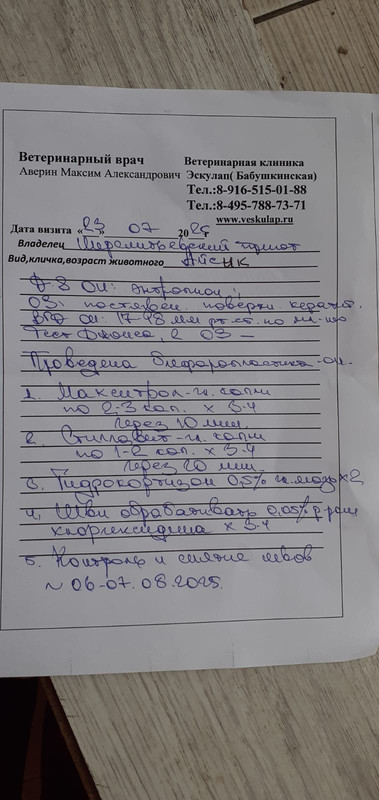 Ветеринарный врач
Аверин Максим Александрович
Ветеринарная клиника
Эскулап( Бабушкинская)
Тел.:8-916-515-01-88
Тел.:8-495-788-73-71
www.veskulap.ru
Дата визита «23» 07 2025
Владелец Шереметьевский приют
Вид,кличка,возраст животного Айсик
OU: энтропион
OS: поверхн. кератит.
ВГД OU: 17-18 мм рт.ст.
Тест Джонса, 2 OS –
Проведена блефаропластика OU.
1. Макситрол-гл. капли
по 2-3 кап. х 3-4
через 10 мин.
2. Стиллавит-гл. капли
по 1-2 кап. х 3-4
через 20 мин.
3. Гидрокортизон 0,5% гл. мазь х2
4. Швы обрабатывать 0,05% р-ром
хлоргексидина х 3-4
5. Контроль и снятие швов
~ 06-07.08.2025.